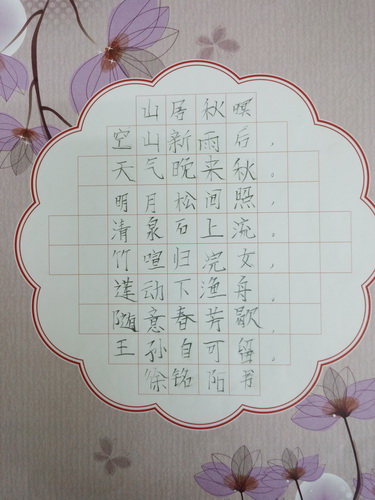 山居秋暝
空山新雨后，
天气晚来秋。
明月松间照，
清泉石上流。
竹喧归浣女，
莲动下渔舟。
随意春芳歇，
王孙自可留。
徐铭阳书